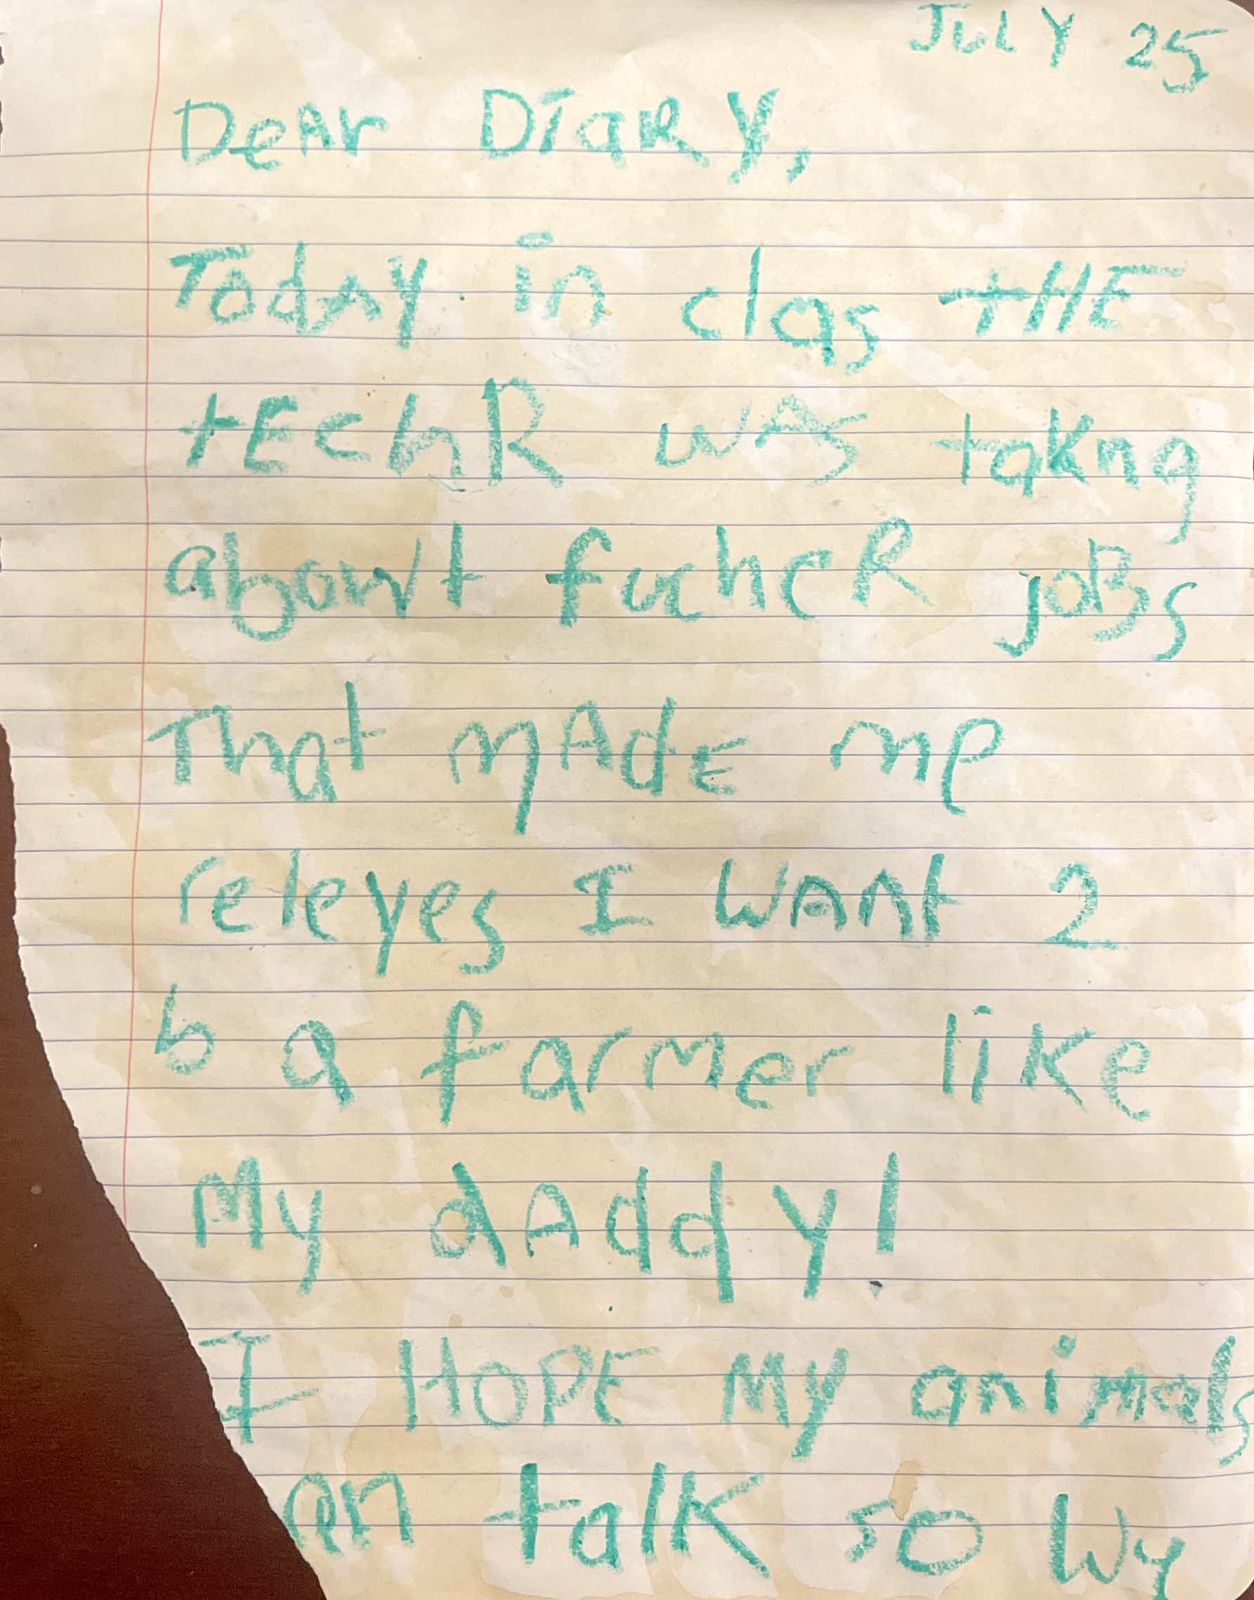 JULY 25
DeAr DiaRY,
TodAY in clas tHE
tEchR wAS takng
abowt fucheR joBs
That mAdE me
releyes I WANt 2
b a farmer like
My dAddY!
I HOPE MY animals
an talK so Wy